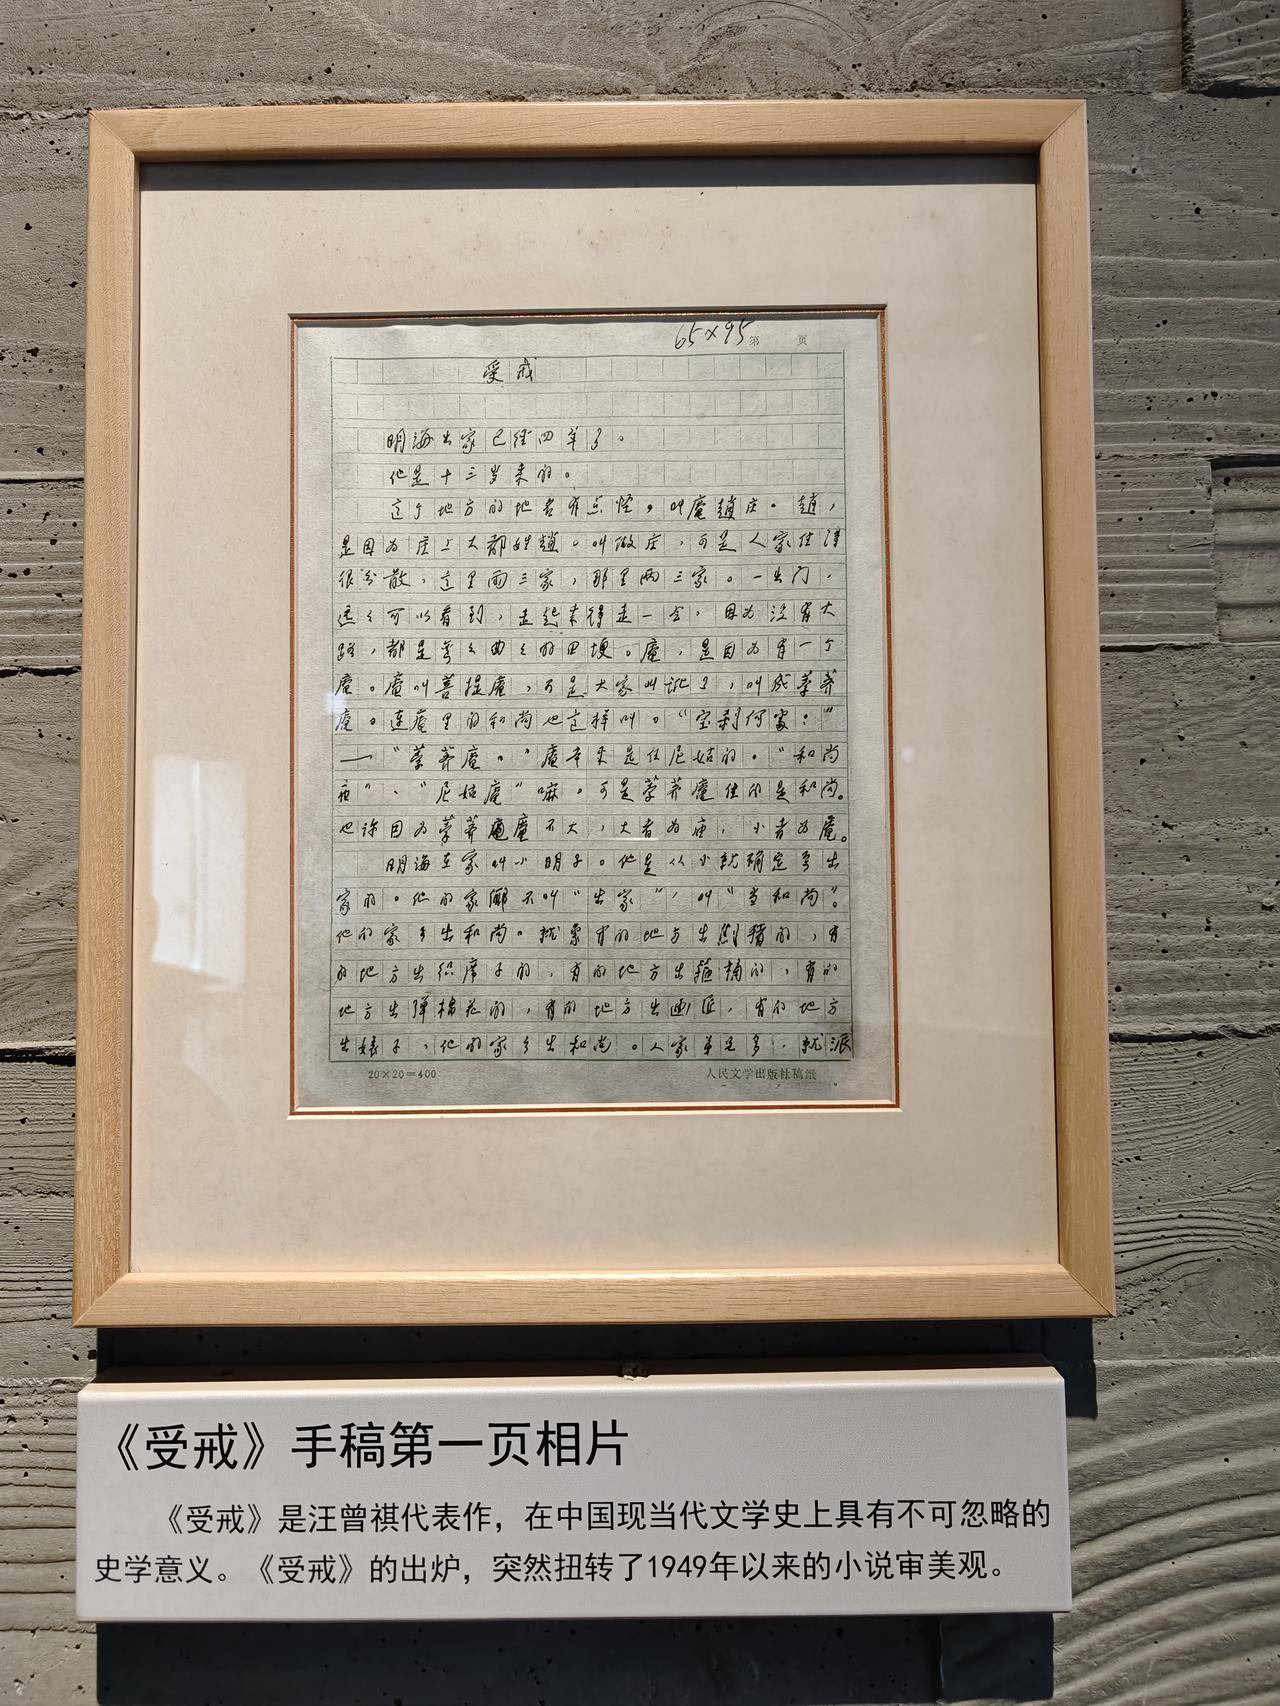 65×95
第 页
受戒
明海出家已经四年了。
他是十三岁来的。
这个地方的地名有点怪，叫庵趙庄。趙，
是因为庄上大都姓趙。叫做庄，可是人家住得
很分散，这里两三家，那里两三家。一出门，
远远可以看到，走起来得走一会，因为没有大
路，都是弯弯曲曲的田埂。庵，是因为有一个
庵。庵叫菩提庵，可是大家叫讹了，叫成荸荠
庵。连庵里的和尚也这样叫。“宝刹何处？”
——“荸荠庵。”庵本来是住尼姑的。“和尚
庙”、“尼姑庵”嘛。可是荸荠庵住的是和尚。
也许因为荸荠庵不大，大者为庙，小者为庵。
明海在家叫小明子。他是从小就确定要出
家的。他的家鄉不叫“出家”，叫“当和尚”。
他的家乡出和尚。就象有的地方出劁猪的，有
的地方出织席子的，有的地方出箍桶的，有的
地方出弹棉花的，有的地方出画匠，有的地方
出婊子，他的家乡出和尚。人家弟兄多，就派
20×20=400
人民文学出版社稿纸
《受戒》手稿第一页相片
《受戒》是汪曾祺代表作，在中国现当代文学史上具有不可忽略的
史学意义。《受戒》的出炉，突然扭转了1949年以来的小说审美观。